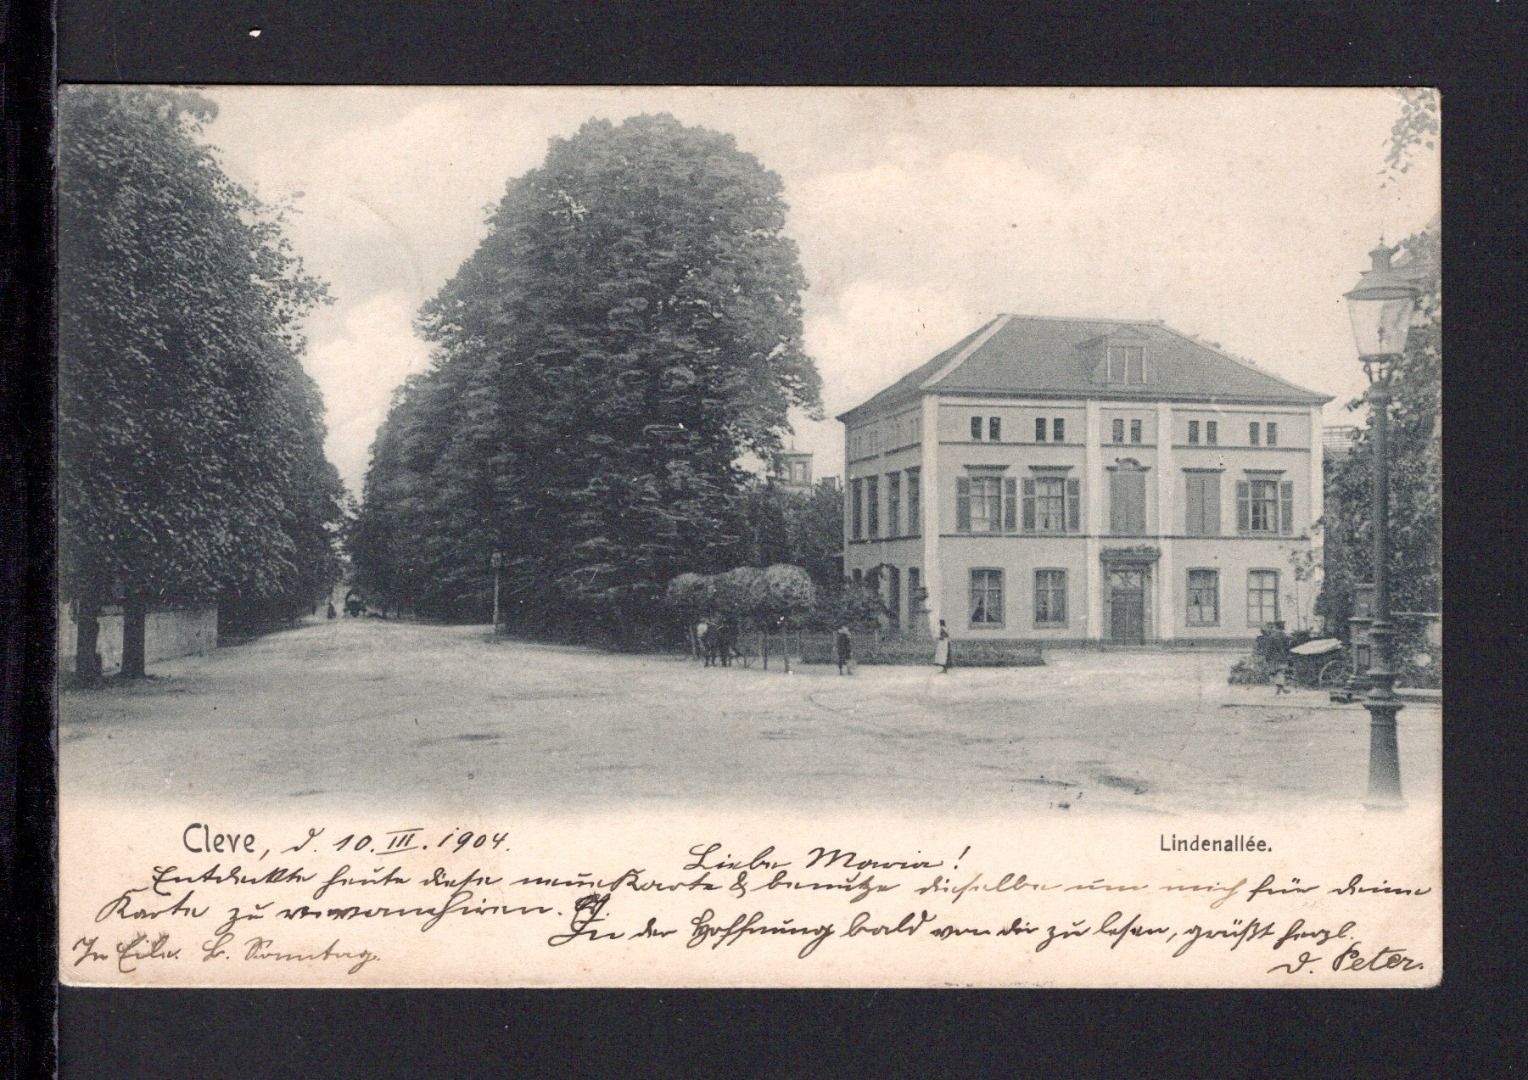 Cleve, d. 10. III. 1904.
Lindenallée.
Liebe Maria!
Entdeckte heute diese neue Karte & benutze dieselbe um mich für deine
Karte zu revanchiren.
In der Hoffnung bald von dir zu lesen, grüßt herzl.
In Eile. b. Sonntag.
d. Peter.